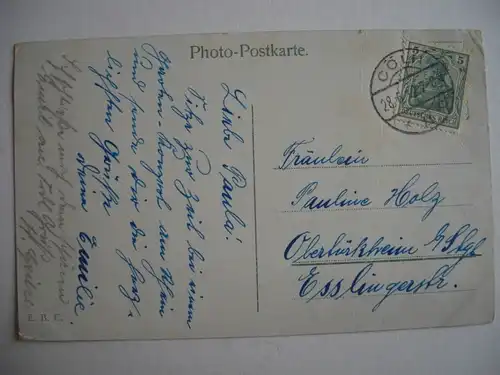 Photo-Postkarte.
CÖLN
5
28.
Liebe Paula!
Sitze zur Zeit bei einem
Garten-Konzert am Rhein
und sende Dir die herz-
lichsten Grüße
Deine Emilie.
Fräulein
Pauline Holz
Obertürkheim b/Stgt.
Esslingerstr.
E. B. C.